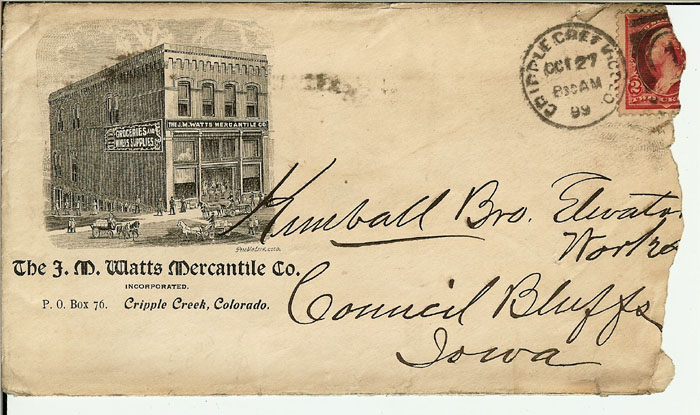 THE J.M. WATTS MERCANTILE CO.
GROCERIES AND
MINERS SUPPLIES
The J. M. Watts Mercantile Co.
INCORPORATED.
P. O. Box 76. Cripple Creek, Colorado.
CRIPPLE CREEK
OCT 27
AM
99
2
Kimball Bro. Elevator
Works
Council Bluffs
Iowa